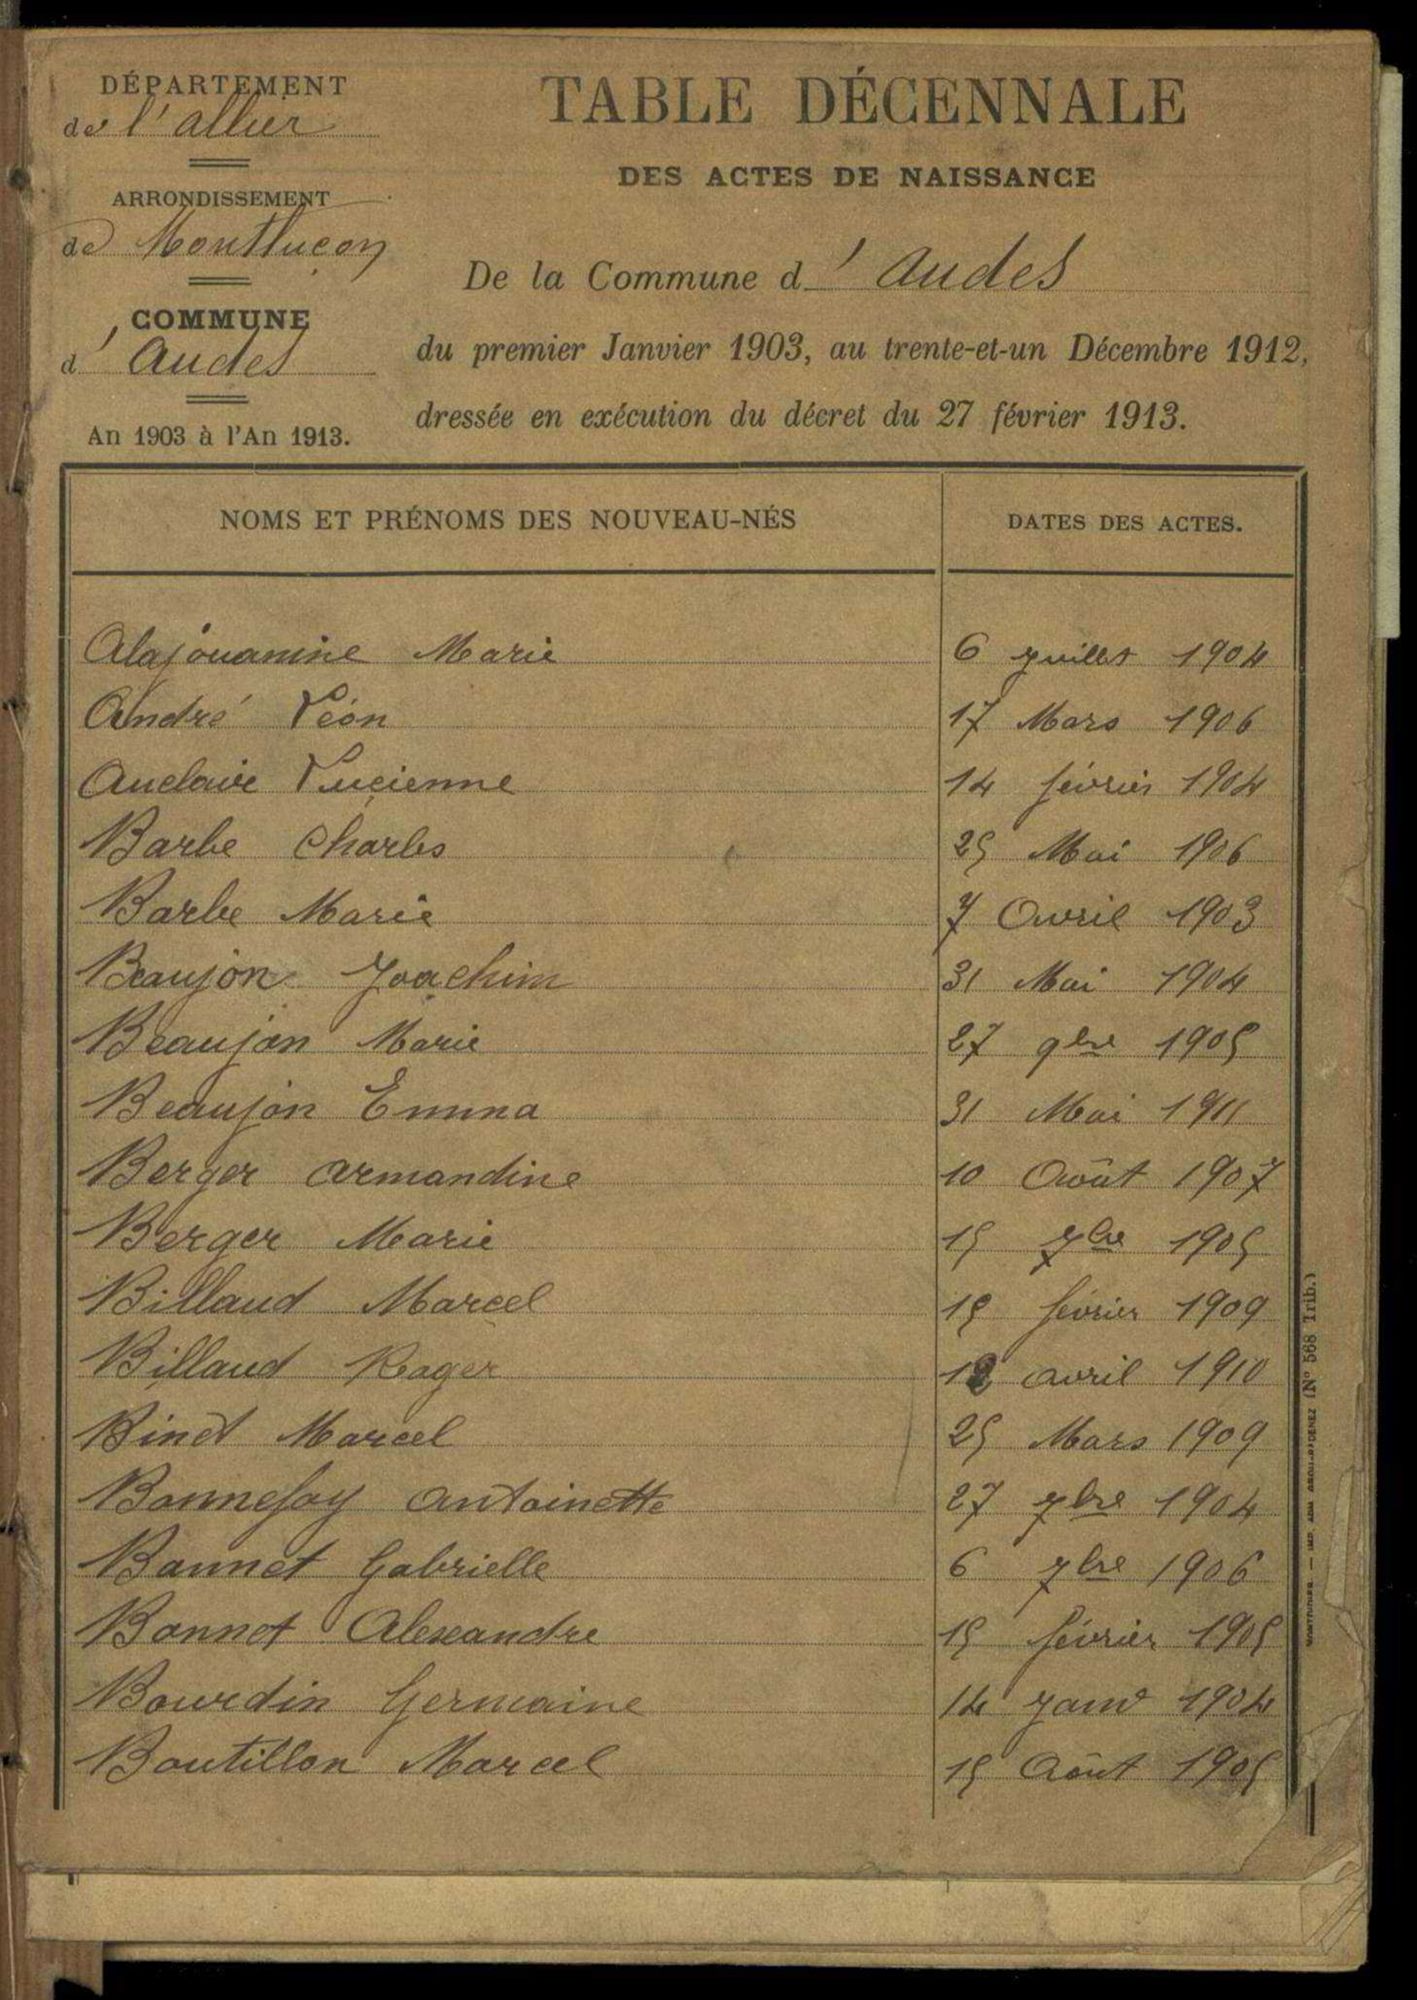 DÉPARTEMENT
de l'allier
ARRONDISSEMENT
de Montluçon
COMMUNE
d'Audes
An 1903 à l'An 1913.
TABLE DÉCENNALE
DES ACTES DE NAISSANCE
De la Commune d'Audes
du premier Janvier 1903, au trente-et-un Décembre 1912,
dressée en exécution du décret du 27 février 1913.
NOMS ET PRÉNOMS DES NOUVEAU-NÉS DATES DES ACTES.
Alajouanine Marie 6 juillet 1904
André Léon 17 Mars 1906
Auclair Lucienne 14 février 1904
Barbe Charles 25 Mai 1906
Barbe Marie 7 Avril 1903
Beaujon Joachim 31 Mai 1904
Beaujon Marie 27 9bre 1905
Beaujon Emma 31 Mai 1911
Berger Armandine 10 Août 1907
Berger Marie 15 7bre 1905
Billaud Marcel 15 février 1909
Billaud Roger 12 avril 1910
Binet Marcel 25 Mars 1909
Bonnefoy Antoinette 27 7bre 1904
Bonnet Gabrielle 6 7bre 1906
Bonnet Alexandre 15 février 1905
Bourdin Germaine 14 Janv 1904
Boutillon Marcel 15 Août 1905
(N° 568 Trib.)